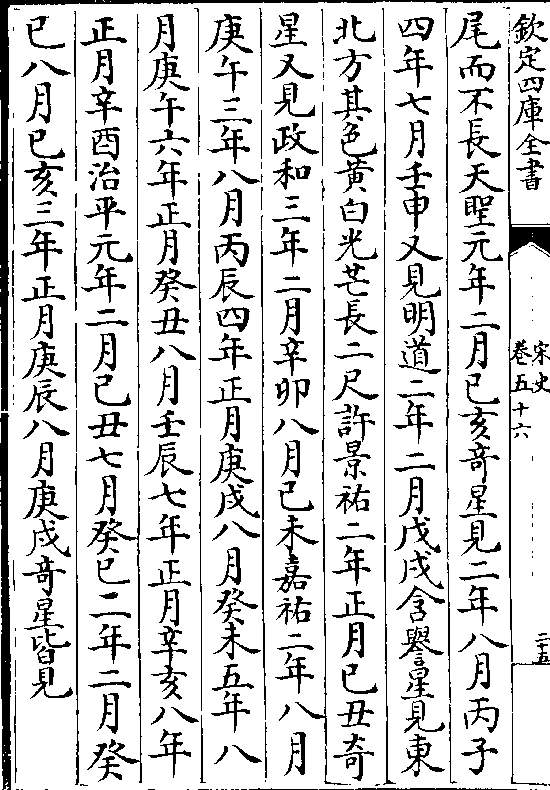 欽定四庫全書
宋史
卷五十六
二十五
尾而不長天聖元年二月己亥竒星見二年八月丙子
四年七月壬申又見明道二年二月戊戌含譽星見東
北方其色黄白光芒長二尺許景祐二年正月己丑奇
星又見政和三年二月辛卯八月己未嘉祐二年八月
庚午三年八月丙辰四年正月庚戌八月癸未五年八
月庚午六年正月癸丑八月壬辰七年正月辛亥八年
正月辛酉治平元年二月己丑七月癸巳二年二月癸
巳八月己亥三年正月庚辰八月庚戌竒星皆見